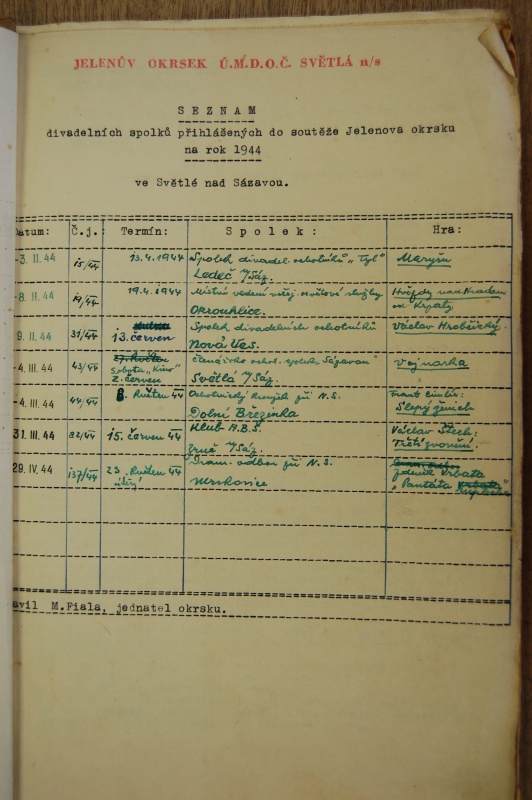 JELENŮV OKRSEK Ú.M.D.O.Č. SVĚTLÁ n/s
SEZNAM
divadelních spolků přihlášených do soutěže Jelenova okrsku
na rok 1944
ve Světlé nad Sázavou.
Datum: Č.j.: Termín: Spolek: Hra:
-3. II. 44 15/44 13.4.1944 Spolek divadel. ochotníků „Tyl" Maryša
Ledeč n/Sáz.
-8. II. 44 19/44 19.4.1944 Místní vedení veřej. osvětové služby Hvězdy nad Hradem
Okrouhlice. Karpaty
9. II. 44 31/44 13. červen Spolek divadelních ochotníků Václav Hrobčický.
Nová Ves.
-4. III. 44 43/44 27. Květen ochot. spolek „Sázavan" Vojnarka
Sobota „Kino"
2. červen Světlá n/Sáz.
-4. III. 44 44/44 8. Květen 44 Ochotnický kroužek při N.S. Frant.
Dolní Březinka Slepý ženich
31. III. 44 82/44 15. červen 44 Klub A.B.Š. Václav Štech:
Zruč n/Sáz. Třetí zvonění.
29. IV. 44 137/44 23. Květen 44 Dram. odbor při N.S. Zdeněk Vrbata
úterý Mrskovice „Pantáta
avil M.Fiala, jednatel okrsku.